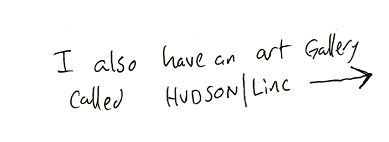 I also have an art Gallery
Called HUDSON|Linc →